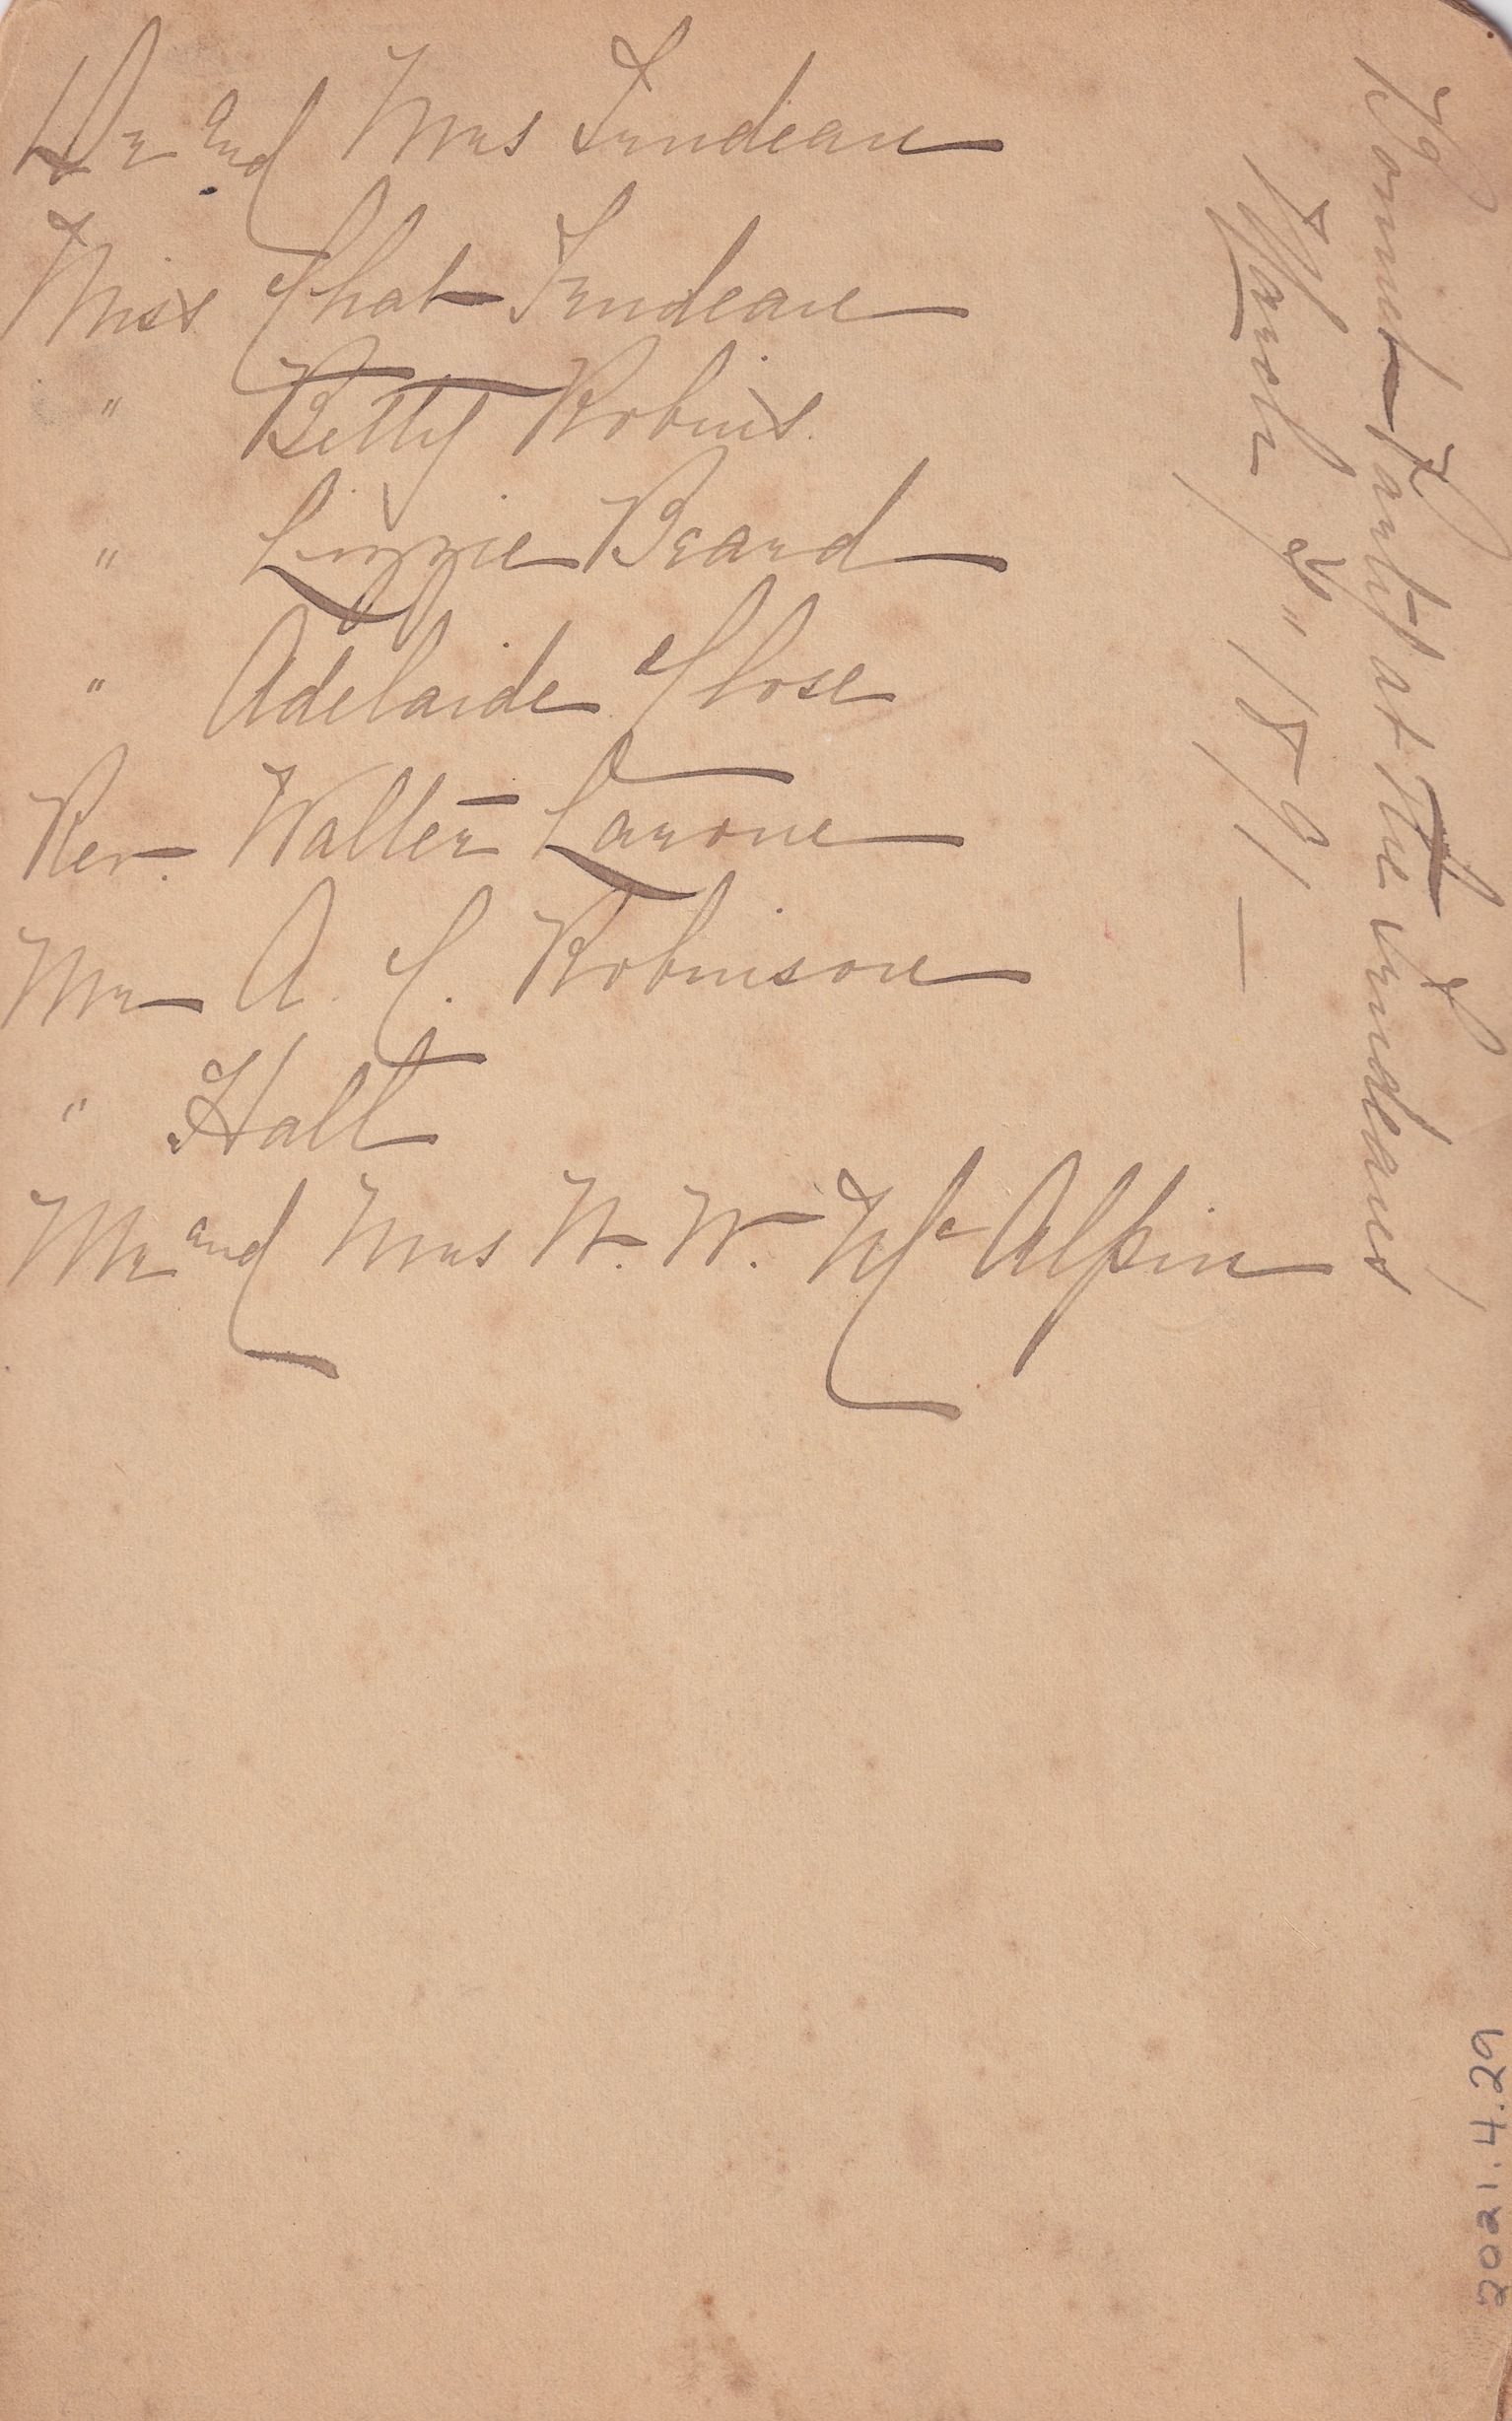 Dr and Mrs Trudeau
Miss Chat Trudeau
" Betty Robins.
" Lizzie Beard
" Adelaide Close
Rev. Walter Larone
Mr A. C. Robinson
" Hall
Mr and Mrs W. W. McAlpin
Bonnet Party at the Trudeaus
March 1891 —
2021.4.29